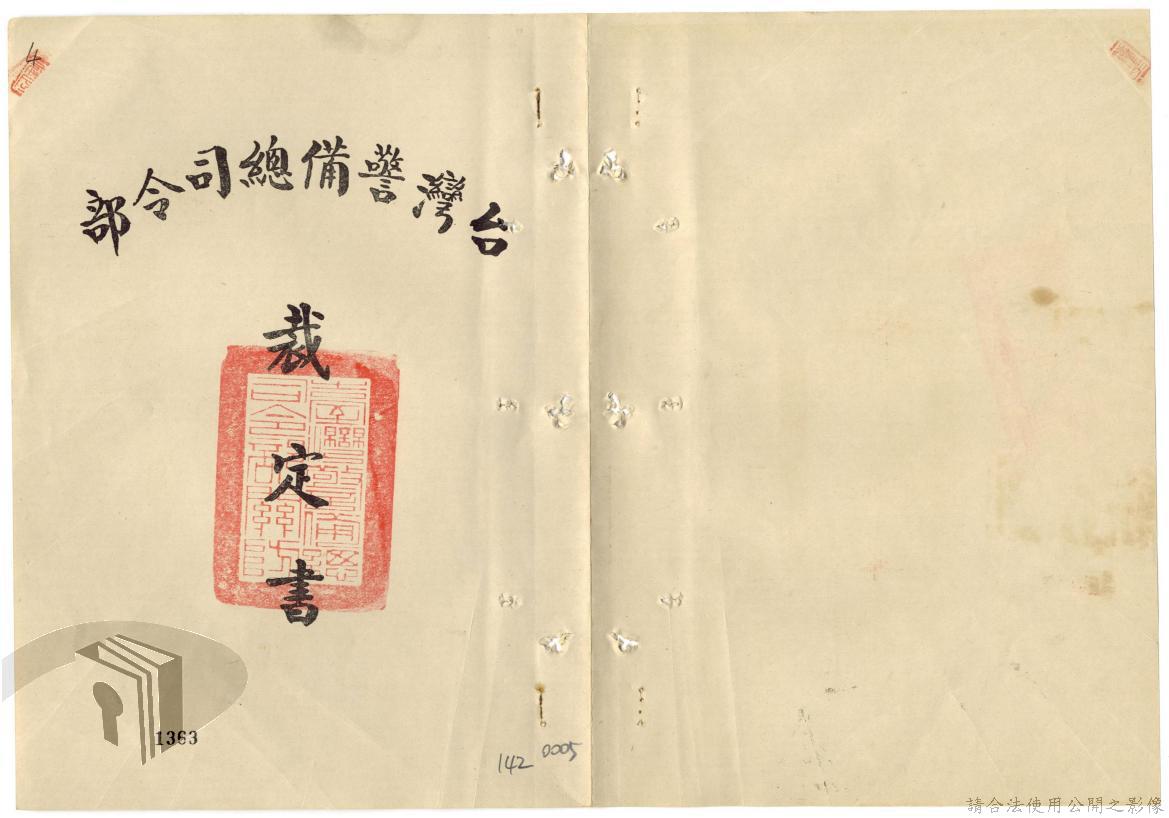 4
台灣警備總司令部
裁定書
1363
142 0005
請合法使用公開之影像